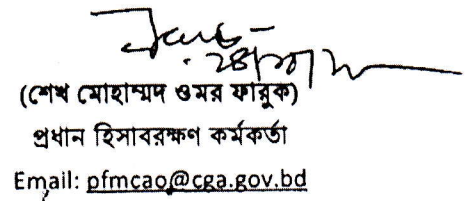 (শেখ মোহাম্মদ ওমর ফারুক)
প্রধান হিসাবরক্ষণ কর্মকর্তা
Email: pfmcao@cga.gov.bd